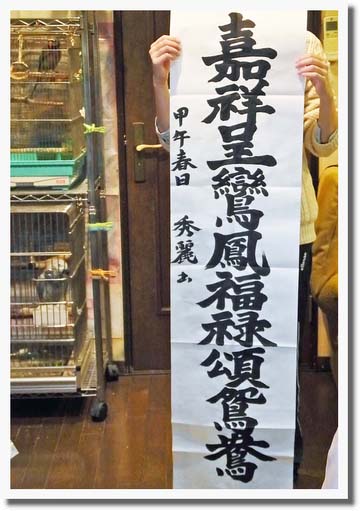 嘉祥呈鸞鳳福禄頌鴛鴦
甲午春日 秀麗書